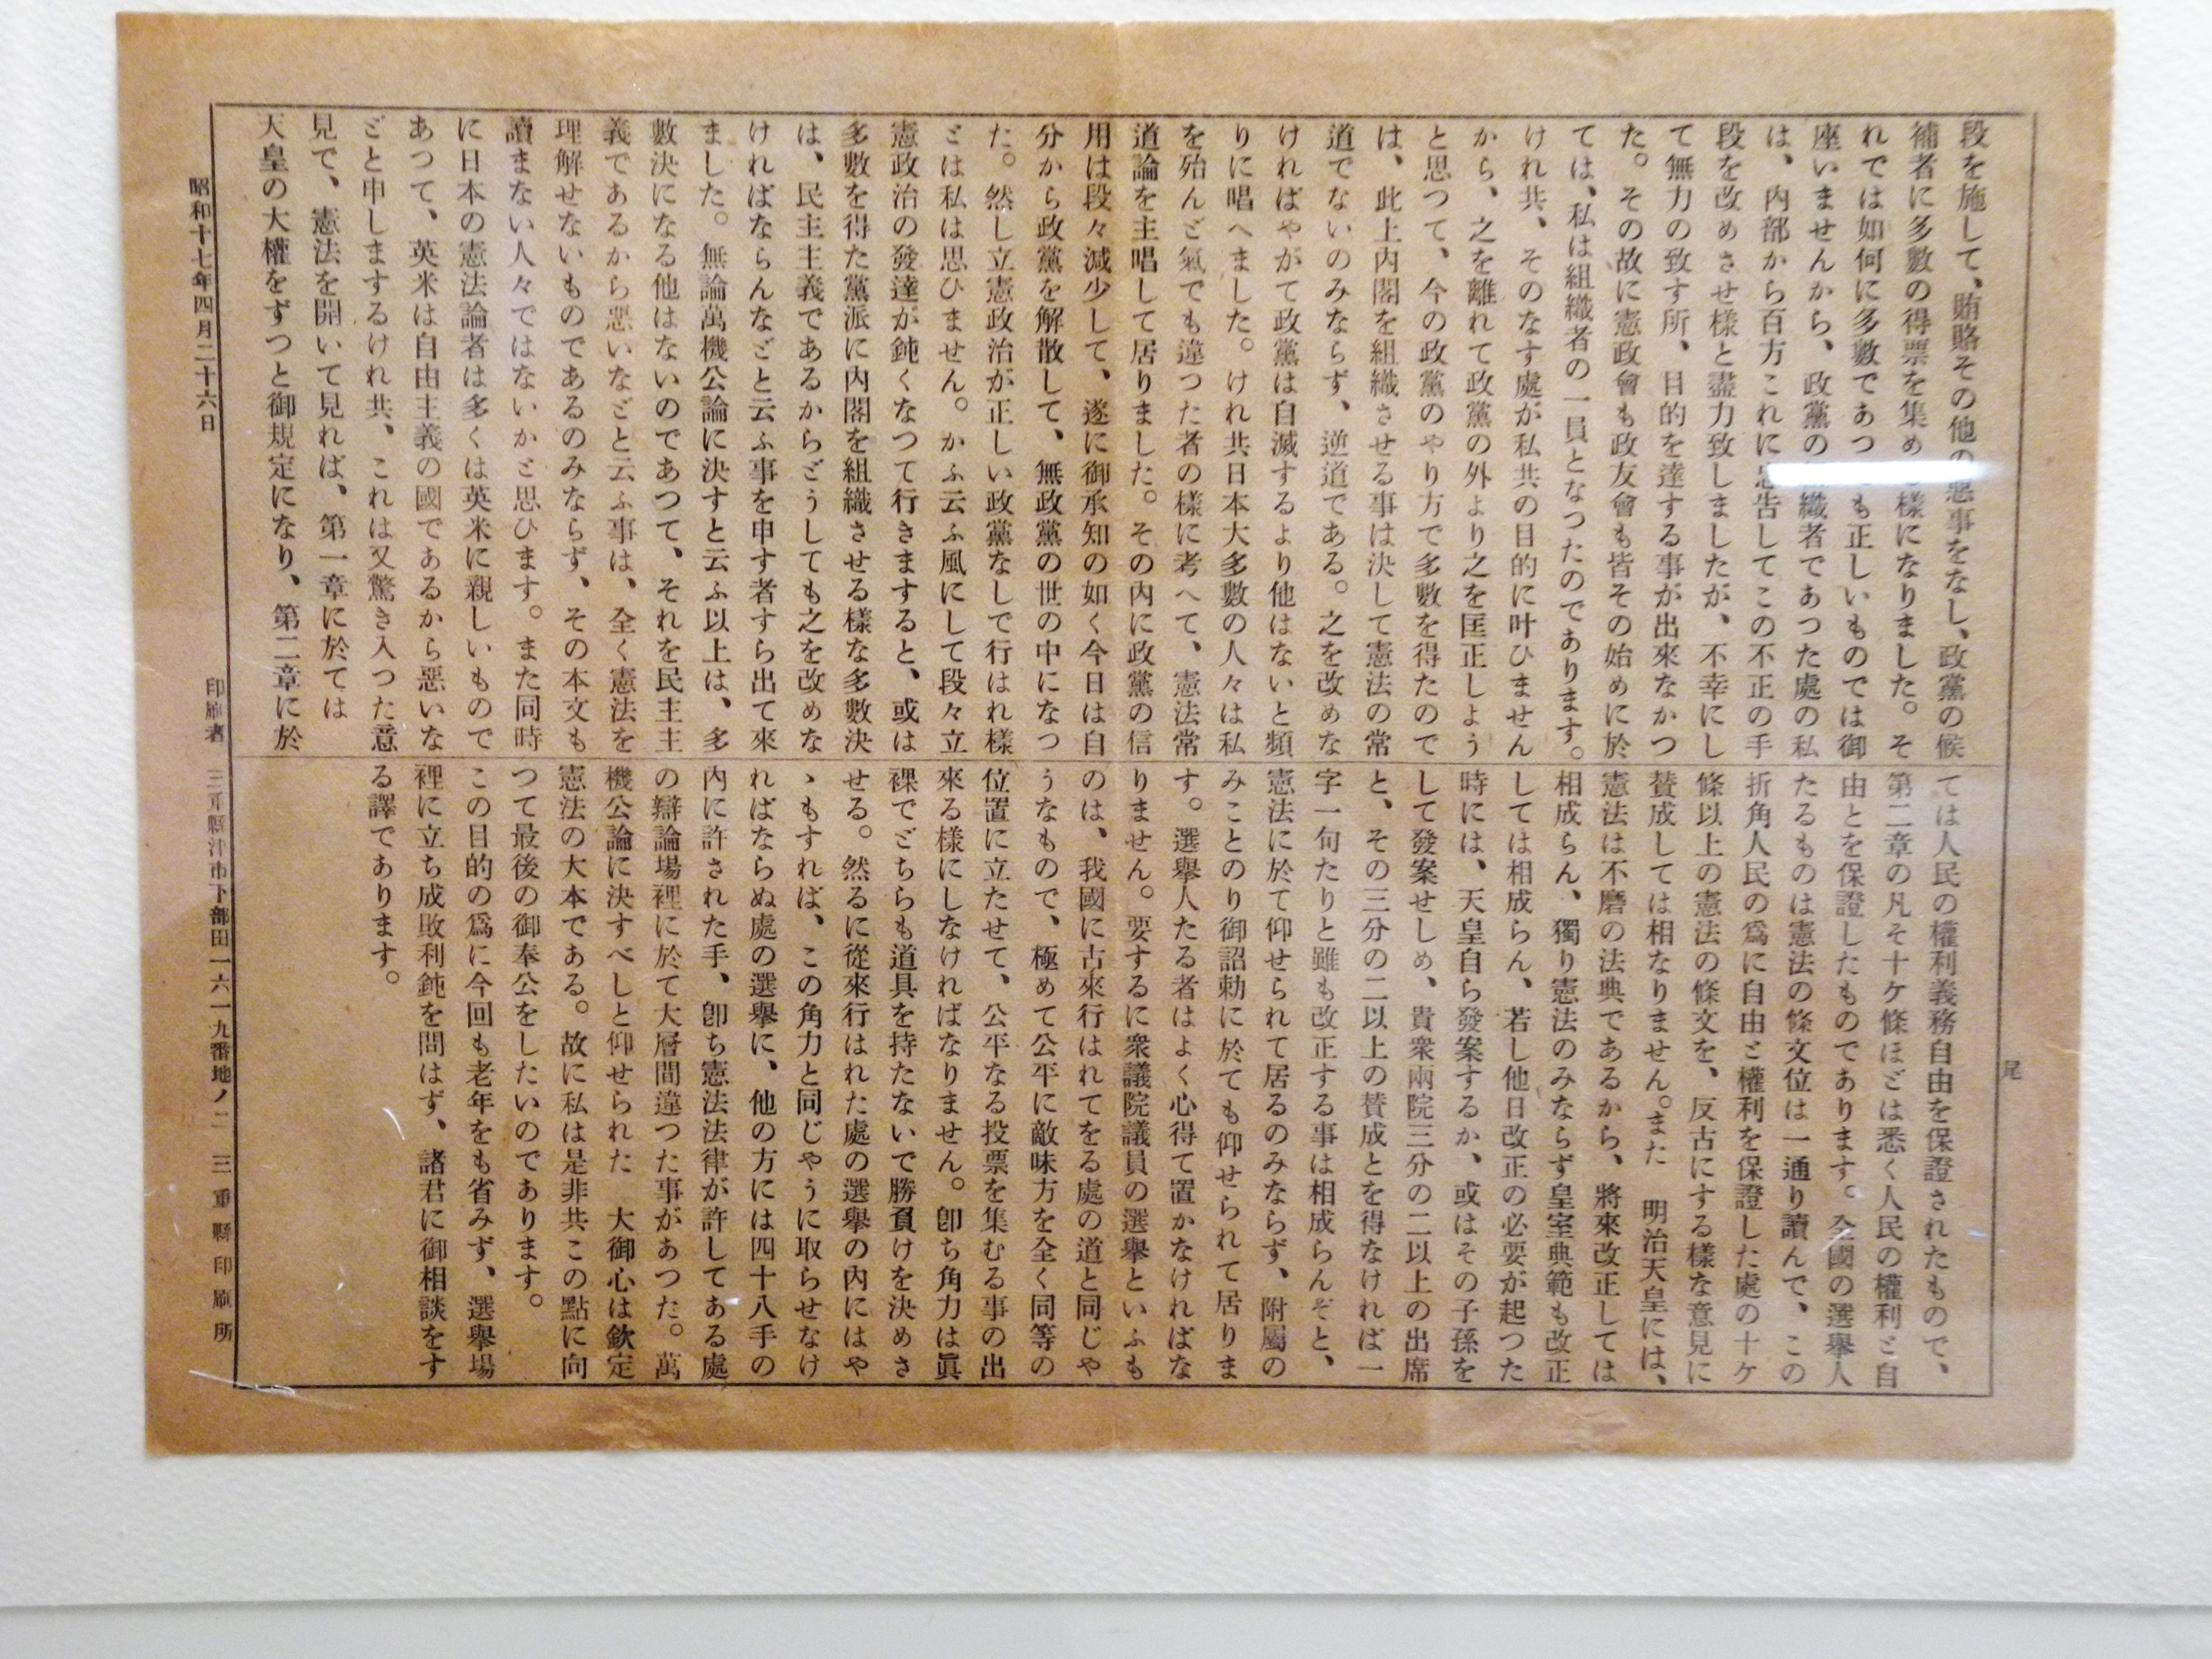 段を施して、賄賂その他の悪事をなし、政黨の候
補者に多數の得票を集め樣になりました。そ
れでは如何に多數であつも正しいものでは御
座いませんから、政黨の織者であつた處の私
は、内部から百方これに忠告してこの不正の手
段を改めさせ樣と盡力致しましたが、不幸にし
て無力の致す所、目的を達する事が出來なかつ
た。その故に憲政會も政友會も皆その始めに於
ては、私は組織者の一員となつたのであります。
けれ共、そのなす處が私共の目的に叶ひません
から、之を離れて政黨の外より之を匡正しよう
と思つて、今の政黨のやり方で多數を得たので
は、此上内閣を組織させる事は決して憲法の常
道でないのみならず、逆道である。之を改めな
ければやがて政黨は自滅するより他はないと頻
りに唱へました。けれ共日本大多數の人々は私
を殆んど氣でも違つた者の樣に考へて、憲法常
道論を主唱して居りました。その内に政黨の信
用は段々減少して、遂に御承知の如く今日は自
分から政黨を解散して、無政黨の世の中になつ
た。然し立憲政治が正しい政黨なしで行はれ樣
とは私は思ひません。かふ云ふ風にして段々立
憲政治の發達が鈍くなつて行きますると、或は
多數を得た黨派に内閣を組織させる樣な多數決
は、民主主義であるからどうしても之を改めな
ければならんなどと云ふ事を申す者すら出て來
ました。無論萬機公論に決すと云ふ以上は、多
數決になる他はないのであつて、それを民主主
義であるから悪いなどと云ふ事は、全く憲法を
理解せないものであるのみならず、その本文も
讀まない人々ではないかと思ひます。また同時
に日本の憲法論者は多くは英米に親しいもので
あつて、英米は自由主義の國であるから悪いな
どと申しまするけれ共、これは又驚き入つた意
見で、憲法を開いて見れば、第一章に於ては
天皇の大權をずつと御規定になり、第二章に於
ては人民の權利義務自由を保證されたもので、
第二章の凡そ十ケ條ほどは悉く人民の權利と自
由とを保證したものであります。全國の選擧人
たるものは憲法の條文位は一通り讀んで、この
折角人民の爲に自由と權利を保證した處の十ケ
條以上の憲法の條文を、反古にする樣な意見に
賛成しては相なりません。また　明治天皇には、
憲法は不磨の法典であるから、將來改正しては
相成らん、獨り憲法のみならず皇室典範も改正
しては相成らん、若し他日改正の必要が起つた
時には、天皇自ら發案するか、或はその子孫を
して發案せしめ、貴衆兩院三分の二以上の出席
と、その三分の二以上の賛成とを得なければ一
字一句たりと雖も改正する事は相成らんぞと、
憲法に於て仰せられて居るのみならず、附屬の
みことのり御詔勅に於ても仰せられて居りま
す。選擧人たる者はよく心得て置かなければな
りません。要するに衆議院議員の選擧といふも
のは、我國に古來行はれてをる處の道と同じや
うなもので、極めて公平に敵味方を全く同等の
位置に立たせて、公平なる投票を集むる事の出
來る樣にしなければなりません。卽ち角力は眞
裸でどちらも道具を持たないで勝負けを決めさ
せる。然るに從來行はれた處の選擧の内にはや
ゝもすれば、この角力と同じやうに取らせなけ
ればならぬ處の選擧に、他の方には四十八手の
内に許された手、卽ち憲法法律が許してある處
の辯論場裡に於て大層間違つた事があつた。萬
機公論に決すべしと仰せられた　大御心は欽定
憲法の大本である。故に私は是非共この點に向
つて最後の御奉公をしたいのであります。
この目的の爲に今回も老年をも省みず、選擧場
裡に立ち成敗利鈍を問はず、諸君に御相談をす
る譯であります。
尾
昭和十七年四月二十六日　印刷者　三重縣津市下部田一六一九番地ノ二　三重縣印刷所